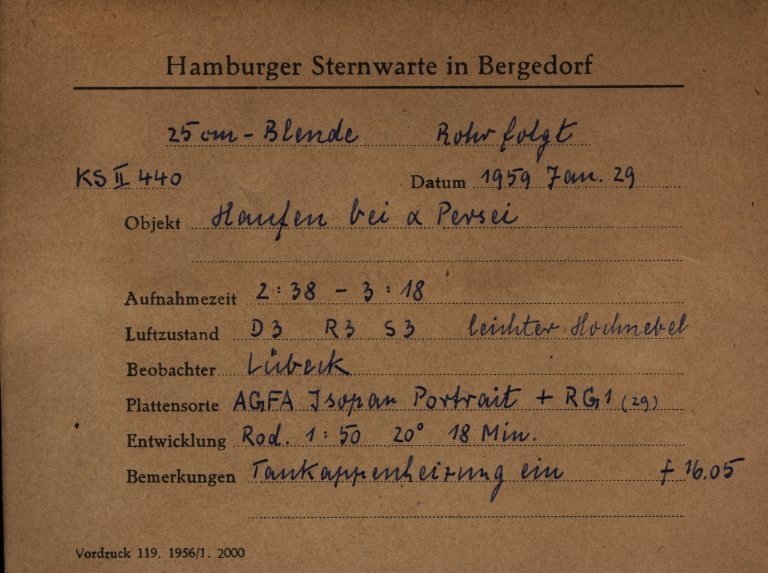 Hamburger Sternwarte in Bergedorf
25 cm - Blende Rohr folgt
KS II 440 Datum 1959 Jan. 29
Objekt Haufen bei α Persei
Aufnahmezeit 2:38 - 3:18
Luftzustand D3 R3 S3 leichter Hochnebel
Beobachter Lübeck
Plattensorte AGFA Isopan Portrait + RG1 (29)
Entwicklung Rod. 1:50 20° 18 Min.
Bemerkungen Taukappenheizung ein f 16.05
Vordruck 119. 1956/1. 2000